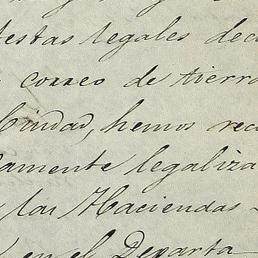 estas legales dec
correo de tierra
Ciudad, hemos rec
amente legaliza
las Haciendas
en el Departa